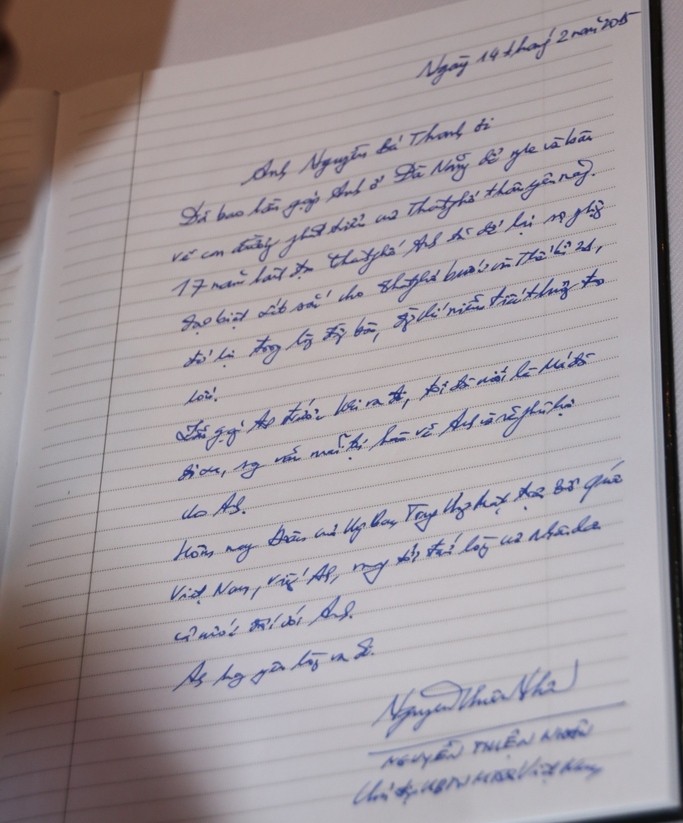 Ngày 14 tháng 2 năm 2015
Anh Nguyễn Bá Thanh ơi
Đã bao lần gặp Anh ở Đà Nẵng để nghe và bàn
về con đường phát triển của Thành phố thân yêu này.
17 năm lãnh đạo Thành phố Anh đã để lại
đặc biệt sâu sắc cho Thành phố bước vào Thế kỉ 21,
để lại trong lòng đồng bào, đồng chí niềm
lớn.
gặp Anh trước khi ra đi, tôi đã
vẫn về Anh
cho Anh.
Hôm nay Đoàn của Ủy Ban Trung ương Mặt trận Tổ quốc
Việt Nam, viếng Anh, mang tới lòng của Nhân dân
cả nước đối với Anh.
Anh hãy yên lòng ra đi.
Nguyễn Thiện Nhân
NGUYỄN THIỆN NHÂN
Chủ tịch UBTW MTTQ Việt Nam